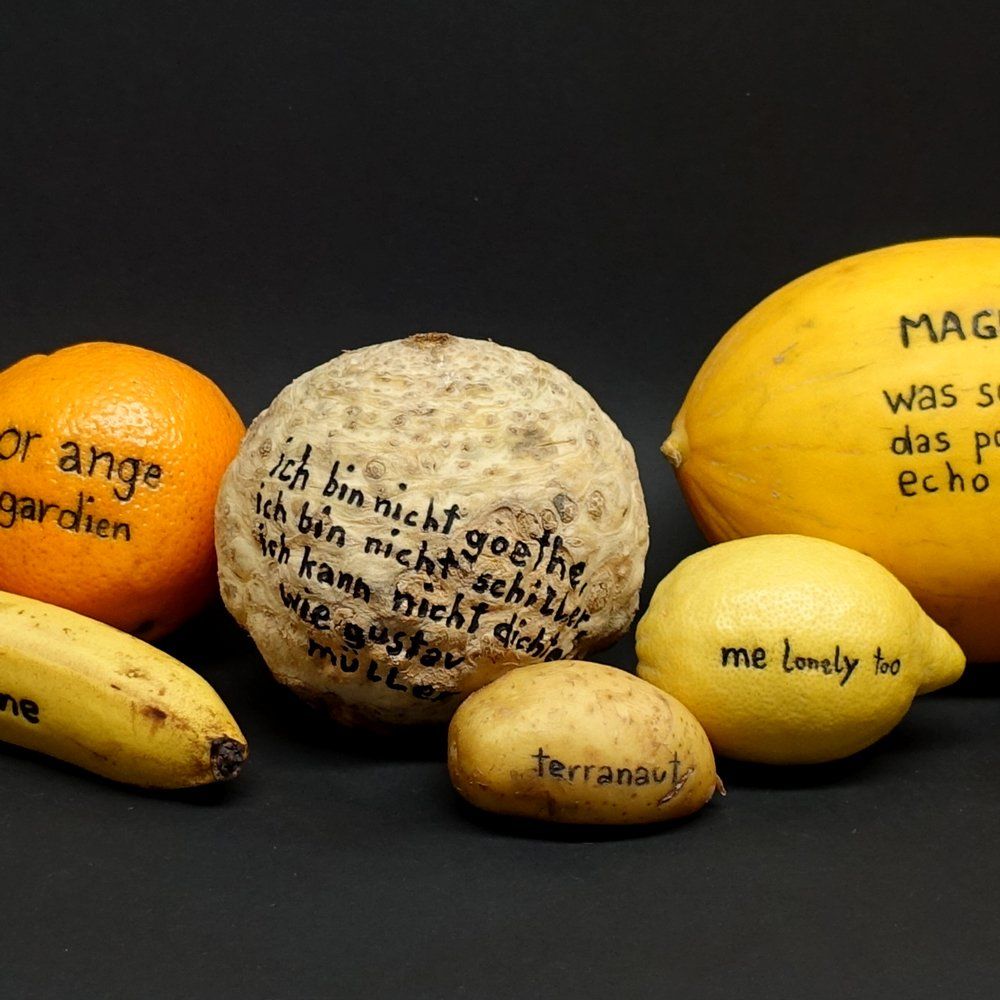 or ange
gardien
ne
ich bin nicht goethe,
ich bin nicht schiller
ich kann nicht dichten
wie gustav
müller
terranaut
me lonely too
MAG
was s
das p
echo